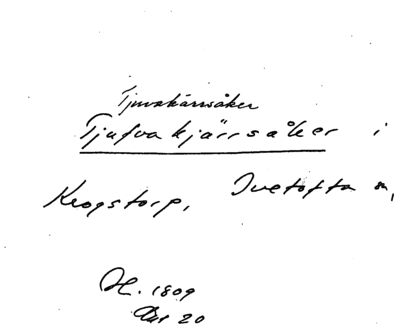 Tjuvakärrsåker
Tjufvakjärrsåker i
Krogstorp, Ivetofta sn,
H. 1809
20